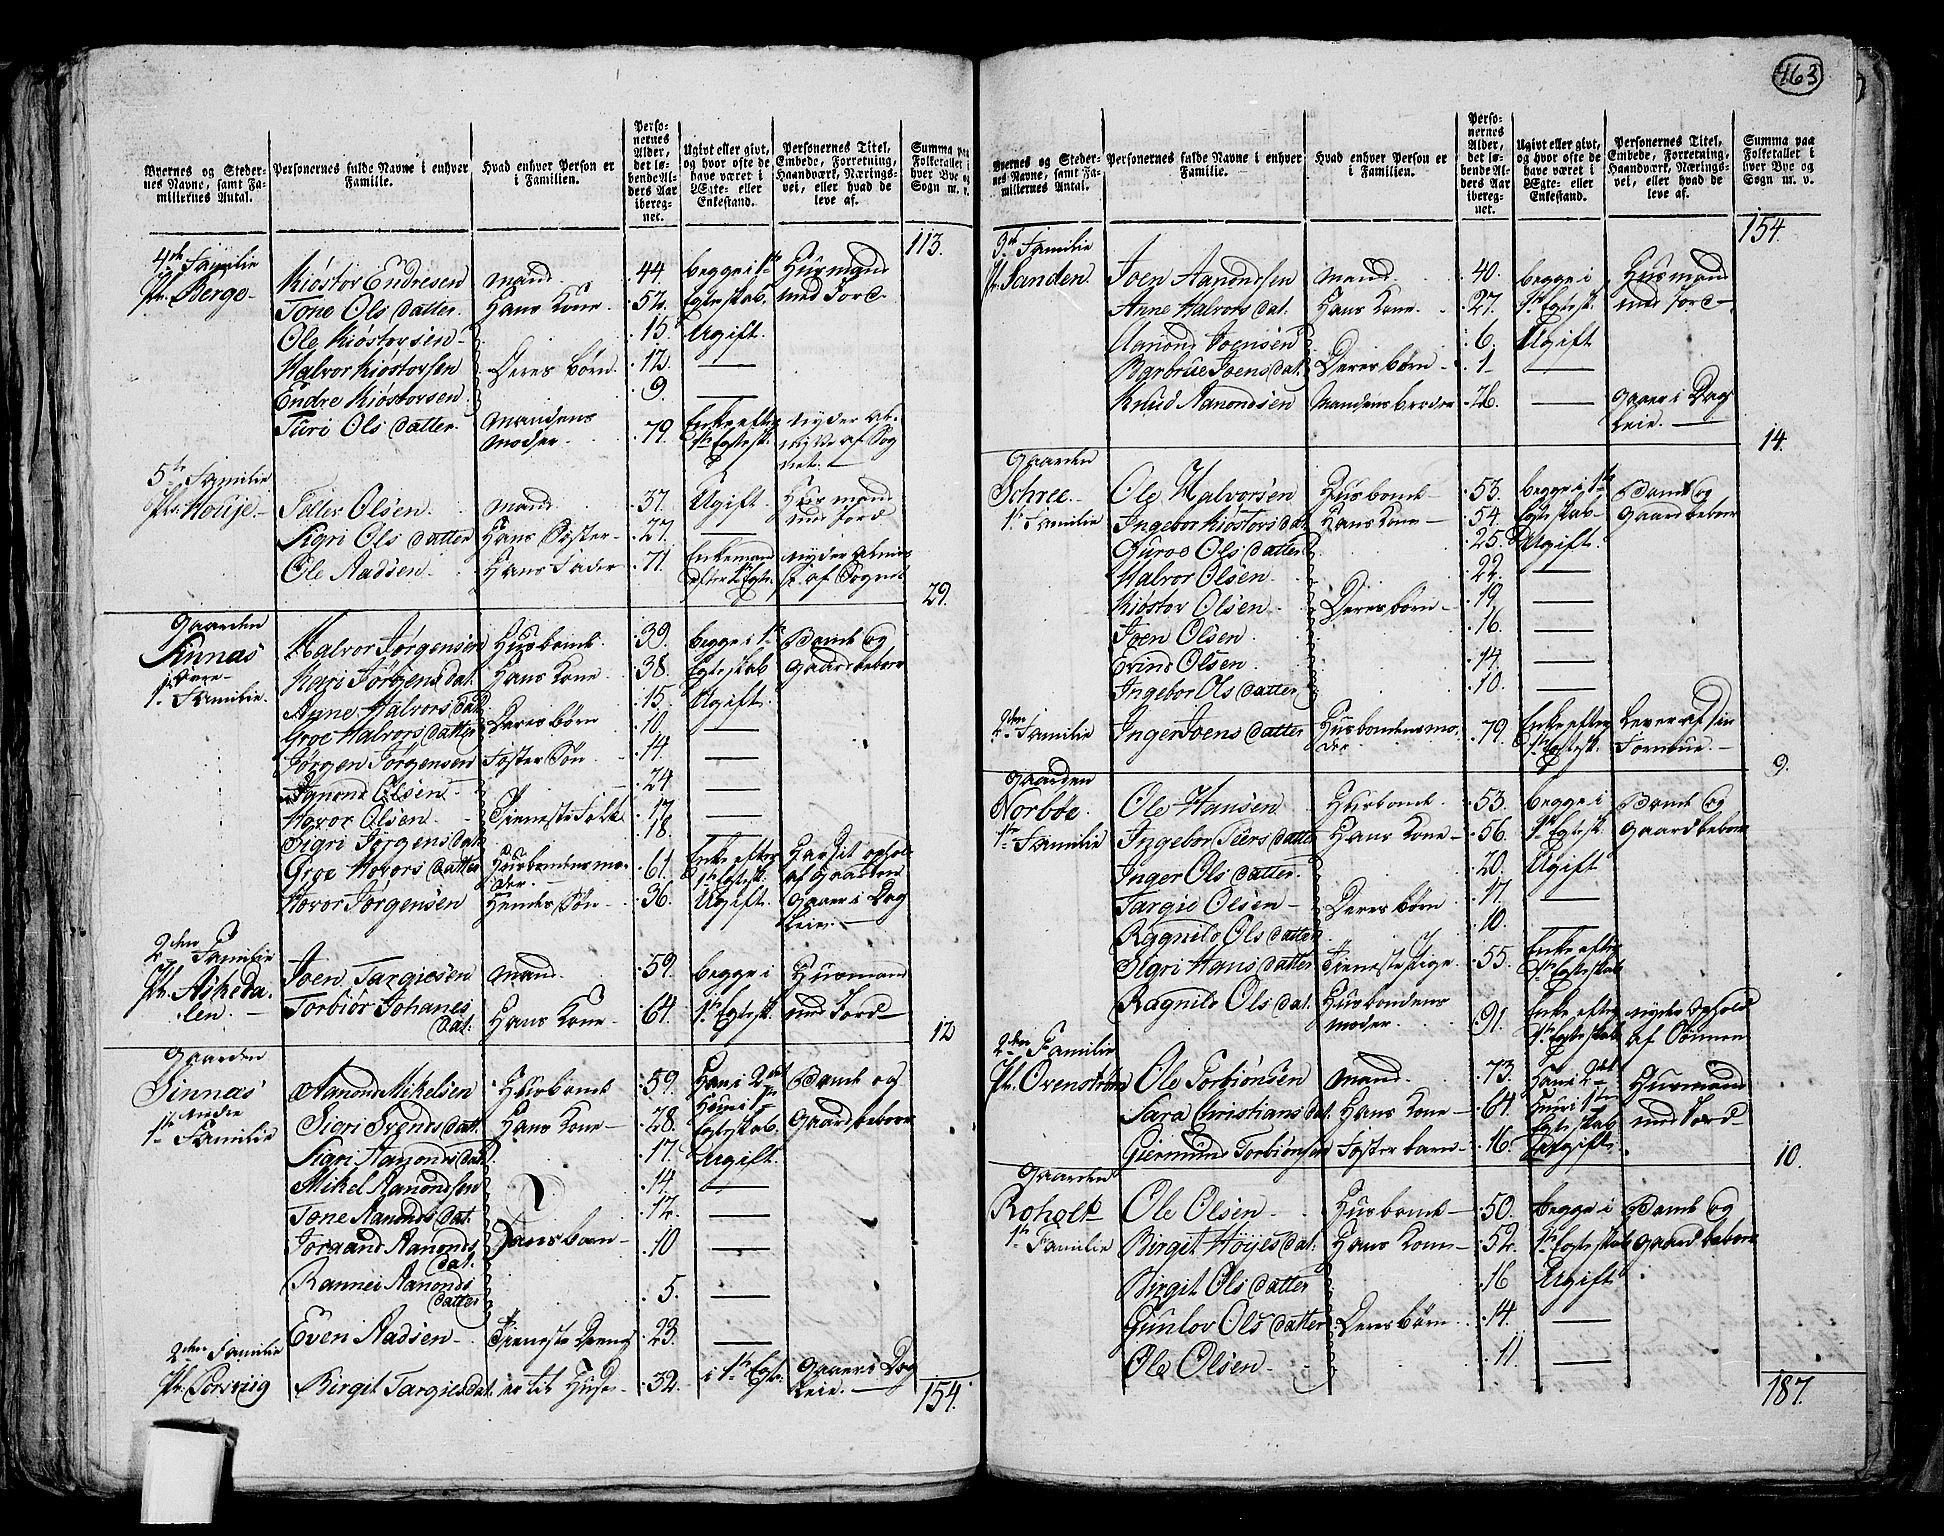 463
Byernes og Steder-
nes Navne, samt Fa-
miliernes Antal.
Personernes fulde Navne i enhver
Familie.
Hvad enhver Person er
i Familien.
Perso-
nernes
Alder,
det lø-
bende Al-
ders Aar
ibereg-
net.
Ugivt eller givt,
og hvor ofte de
have været i
Ægte- eller
Enkestand.
Personernes Titel,
Embede, Forretning,
Haandværk, Nærings-
vei, eller hvad de
leve af.
Summa paa
Folketallet i
hver Bye og
Sogn m. v.
113.
4de Familie
Pl. Berge
Kiöstov Endresen mand 44. begge i 1te Huusmand
Tone Olsdatter. Hans Kone 54. Egteskab. med Jord
Ole Kiöstovsen 15 Ugift.
Halvor Kiöstovsen Deres börn. 12 —
Endre Kiöstovsen 9. —
Turi Olsdatter. mandens moder 79. Enke efter 1te Egtesk. nyder af
5te Familie
Pl. Houje
Olsen. mand 37. Ugift. Huusmand med Jord
Sigri Olsdatter Hans Söster 27. —
Ole Aadsen Hans Fader 71 Enkemand efter 1te Egte. nyder af Sognet
29.
Gaarden
Sinnas
1te Familie.
Halvor Jörgensen Husbonde 39. begge i 1te Bonde Og
Mari Jörgensdat. Hans Kone 38. Egteskab Gaardbeboer
Anne Halvorsdat. 15. Ugift.
Groe Halvorsdatter Deres börn 10. —
Jörgen Jörgensen Foster Sön 14. —
Olsen 24 —
Hovor Olsen Tieneste Folk 17. —
Sigri Jörgensdat. 18. —
Groe Hovorsdatter Husbondens moder. 61. Enke efter 1te Egtesk. Har sit ophold af Gaarden
Hovor Jörgensen Hendes Sön 36. Ugift. Gaaer i Dag Leie.
2den Familie
Pl. Askeda-
len.
Joen Targiesen mand. 59. begge i Huusmand
Torbiör Johanes dat. Hans Kone 64. 1te Egtesk. med Jord
12
Gaarden
Sinnas
1te Familie
Aamond Mikelsen Husbonde 59. Han i 2det Bonde og
Sigri Svendsdat. Hans Kone 28. Hun i 1te Egteskab. Gaardbeboer
Sigri Aamondsdat. 17. Ugift.
Mikel Aamondsen 14 —
Tone Aamondsdat. 12. —
Jorgaand Aamonds dat. Hans born 10 —
Rannei Aamonds datter 5. —
Even Aadsen Tieneste Dreng 23. —
2den Familie
Pl. Porsvig
Birgit Targiesdat. er til Huse 32. i 1te Egte. Gaaer i Dag Leie.
154.
Byernes og Steder-
nes Navne, samt Fa-
miliernes Antal.
Personernes fulde Navne i enhver
Familie.
Hvad enhver Person er
i Familien.
Perso-
nernes
Alder,
det lø-
bende Al-
ders Aar
ibereg-
net.
Ugivt eller givt,
og hvor ofte de
have været i
Ægte- eller
Enkestand.
Personernes Titel,
Embede, Forretning,
Haandværk, Nærings-
vei, eller hvad de
leve af.
Summa paa
Folketallet i
hver Bye og
Sogn m. v.
154.
3de Familie
Pl. Sanden
Joen Aamondsen mand 40. begge i Huusmand
Anne Halvorsdat. Hans Kone 27. 1te Egtesk. med Jord
Aamond Joensen 6. Ugift
Barbrue Joensdat. Deres börn 1 —
Knud Aamondsen Mandens broder 26. — Gaaer i Dag Leie.
14.
Gaarden
Schree
1te Familie
Ole Halvorsen Husbonde 53. begge i 1te Bonde og
Ingebor Kiöstovsdat. Hans Kone 54. Egteskab Gaardbeboer
Guroe Olsdatter 25. Ugift.
Halvor Olsen 22. —
Kiöstov Olsen Deres börn 19 —
Joen Olsen 16. —
Evind Olsen. 14. —
Ingebor Olsdatter 10. —
2den Familie
Inger Joensdatter Husbondens moder 79. Enke efter 1te Egtesk. Lever af sin Formue.
9.
Gaarden
Norböe
1te Familie
Ole Hansen Husbonde. 53. begge i Bonde Og
Ingebor Peersdatter Hans Kone 56. 1te Egtesk. Gaardbeboer
Inger Olsdatter. 20. Ugift
Targie Olsen Deres börn 17. —
Ragnild Olsdatter. 10. —
Sigri Hansdatter Tieneste Pige 55. Enke efter 1te Egteskab
Ragnild Olsdat. Husbondens moder 91. Enke efter 1te Egteskab nyder Ophold af Sönnen
2den Familie
Pl. Ovenström
Ole Torbiönsen mand. 73. Han i 2det Huusmand
Sara Christiansdat. Hans Kone 64. Hun i 1te Egteskab med Jord
Giermund Torbiönsen Foster barn 16. Ugift.
10.
Gaarden
Roholt
1te Familie
Ole Olsen Husbonde 50. begge i Bonde Og
Birgit Höyesdat. Hans Kone 52. 1te Egteskab Gaardbeboer
Birgit Olsdatter 16 Ugift
Gunlov Olsdatter Deres börn 14. —
Ole Olsen 11. —
187.